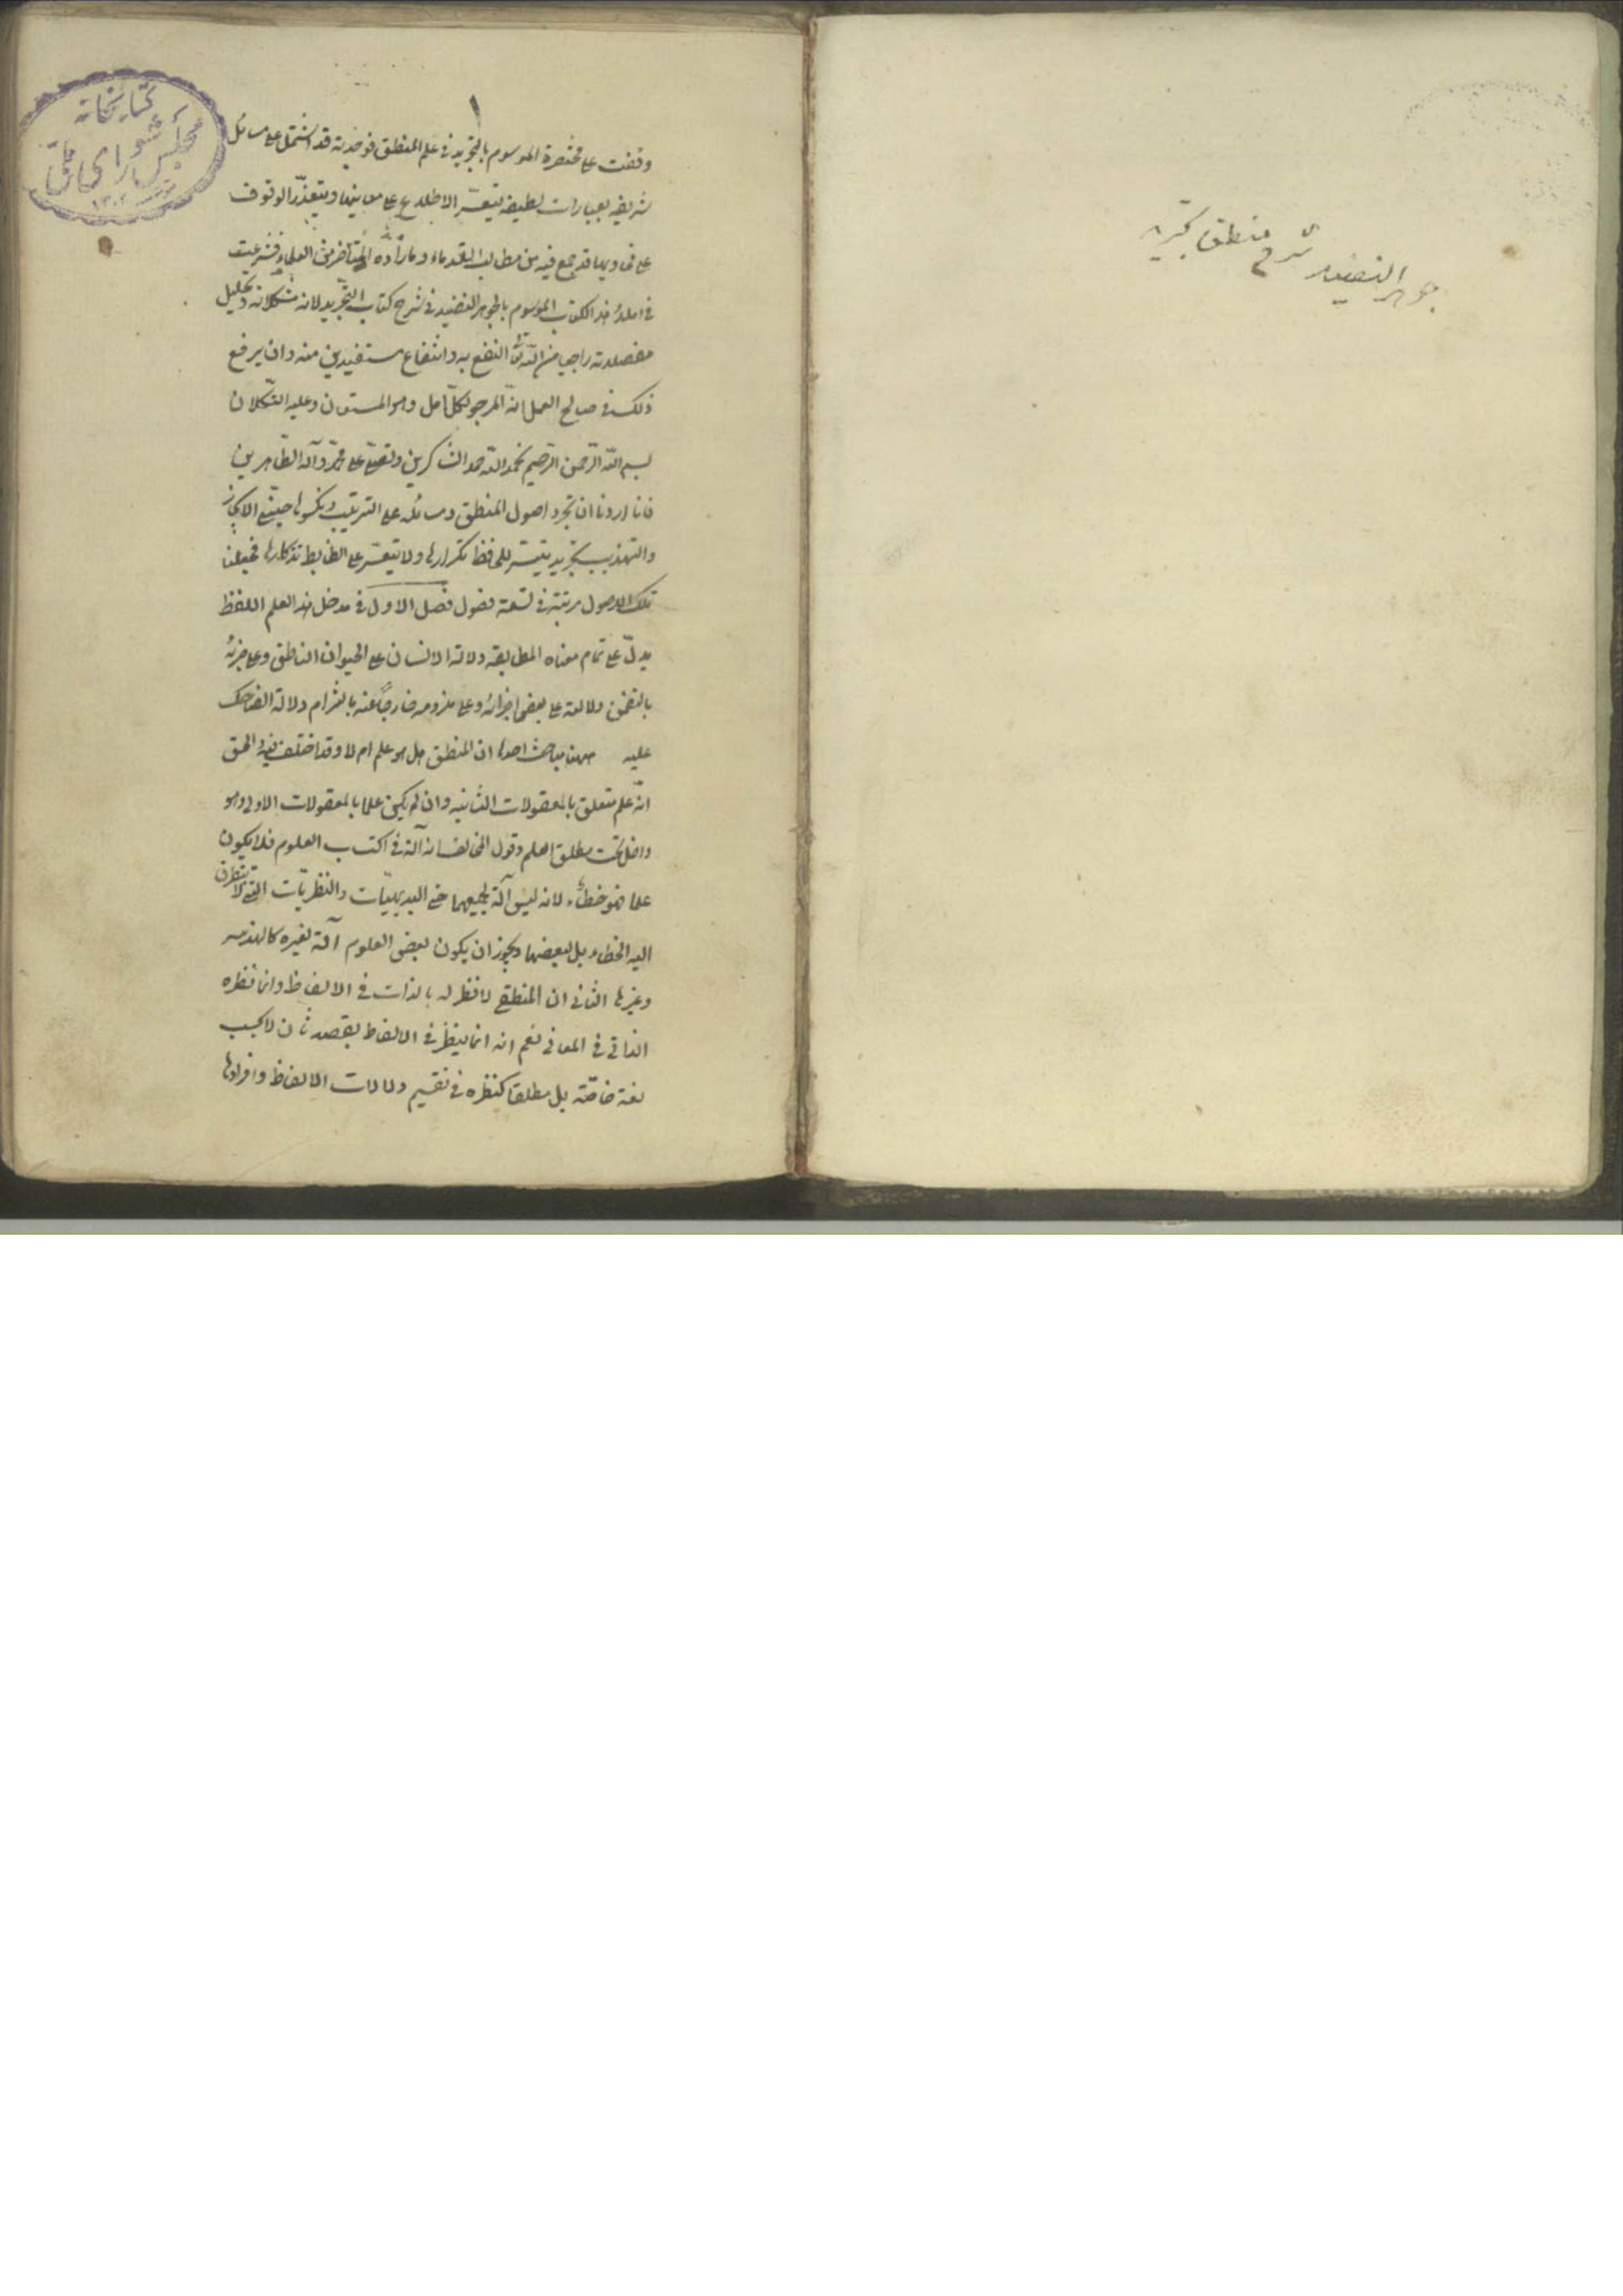 جوهر النضید شرح منطق تجرید
کتابخانه
مجلس شورای ملی
١
وقفت علی مختصرة الموسوم بالتجرید فی علم المنطق فوجدته قد اشتمل علی مسائل
شریفه بعبارات لطیفه یتعسّر الاطلاع علی معانیها ویتعذّر الوقوف
علی فحاویها قد جمع فیه من مطالب القدماء وما زاده المتأخرین من العلماء فشرعت
فی املاء هذا الکتاب الموسوم بالجوهر النضید فی شرح کتاب التجرید لابانة مشکلاته وتحلیل
معضلاته راجیا من اللّه تعالی النفع به وانتفاع مستفیدین منه وان یرفع
ذلک فی صالح العمل انّه المرجو لکلّ امل وهو المستعان وعلیه التّکلان
بسم اللّه الرّحمن الرّحیم نحمد اللّه حمد الشاکرین ونصلّی علی محمّد وآله الطّاهرین
فانا اردنا ان نجرد اصول المنطق ومسائله علی الترتیب ونکسوها حیّتی الایجاز
والتهذیب تجرید یتیسّر للحافظ تکرارها ولا یتعسّر علی الضابط تذکارها فجعلنا
تلک الاصول مرتبة فی تسعة فصول فصل الاول فی مدخل هذا العلم اللفظ
یدلّ علی تمام معناه المطابقه دلالة الانسان علی الحیوان الناطق وعلی جزئه
بالتضمن دلالته علی بعض اجزائه وعلی ملزومه خارجاً عنه بالتزام دلالة الضاحک
علیه ههنا مباحث احدها ان المنطق هل هو علم ام لا وقد اختلف فیه والحق
انّه علم متعلق بالمعقولات الثانیه وان لم یکن علما بالمعقولات الاولی وهو
داخل تحت مطلق العلم وقول المخالف انه آلة فی اکتساب العلوم فلا یکون
علما فهو خطاء لانه لیس آلة لجمیعها حتی البدیهیّات والنظریّات التی لا یتطرق
الیه الخطاء بل لبعضها ویجوز ان یکون بعض العلوم آلة لغیره کالهندسه
وغیرها الثانی ان المنطقی لا نظر له بالذات فی الالفاظ وانما نظره
الذاتی فی المعانی نعم انه انما ینظر فی الالفاظ بقصد ثان لا بحسب
لغة خاصّة بل مطلقا کنظره فی تقسیم دلالات الالفاظ وافرادها